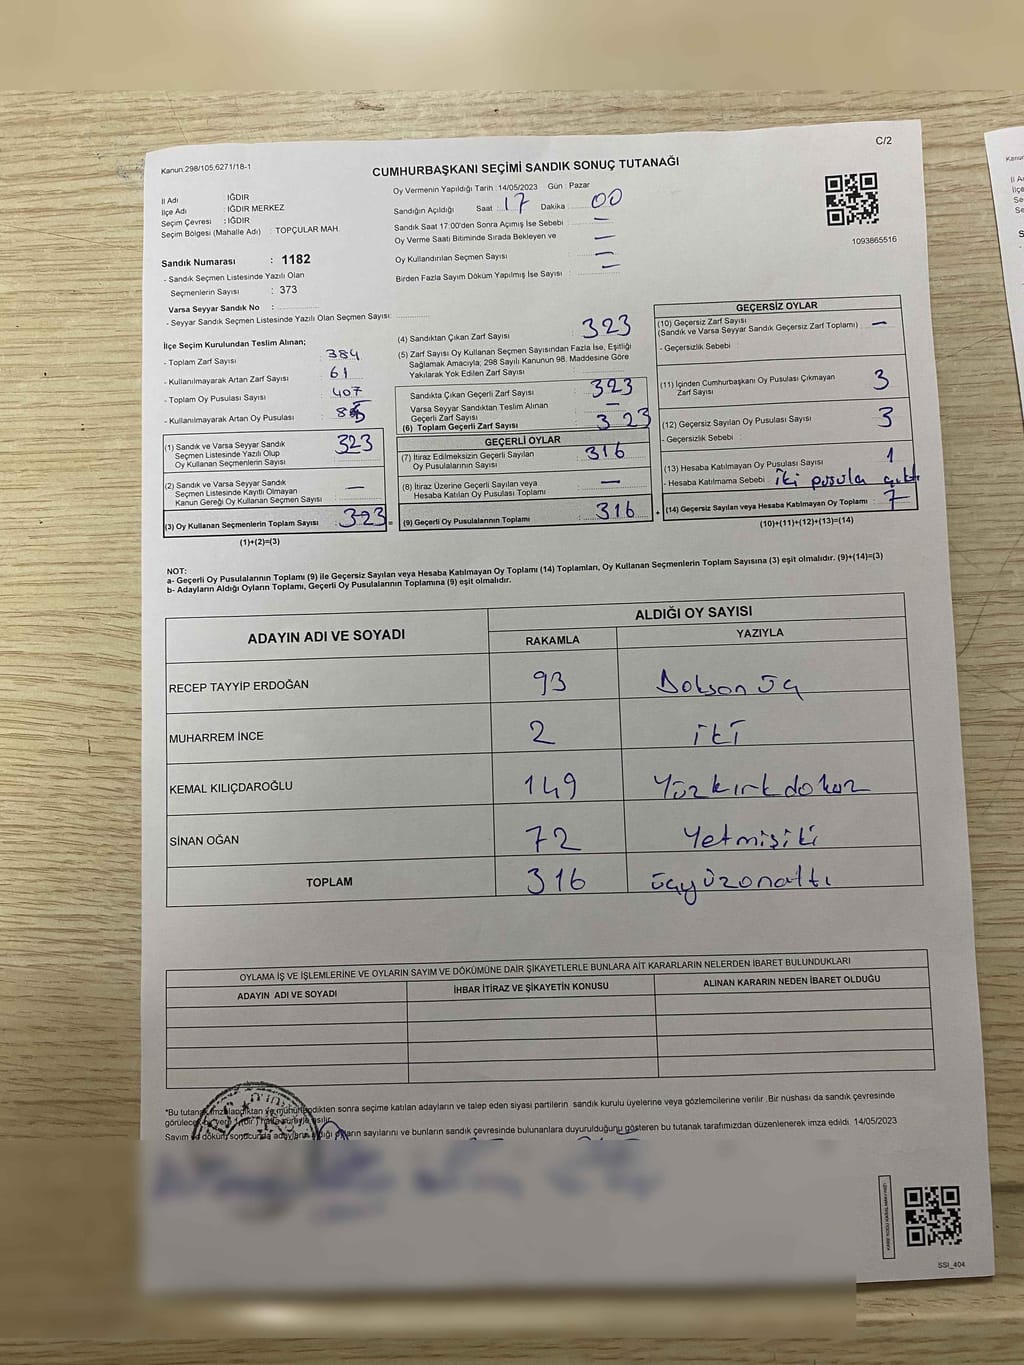 C/2
Kanun:298/105.6271/18-1
CUMHURBAŞKANI SEÇİMİ SANDIK SONUÇ TUTANAĞI
İl Adı : IĞDIR
İlçe Adı : IĞDIR MERKEZ
Seçim Çevresi : IĞDIR
Seçim Bölgesi (Mahalle Adı) : TOPÇULAR MAH.
Sandık Numarası : 1182
- Sandık Seçmen Listesinde Yazılı Olan
Seçmenlerin Sayısı : 373
Varsa Seyyar Sandık No :
- Seyyar Sandık Seçmen Listesinde Yazılı Olan Seçmen Sayısı:
Oy Vermenin Yapıldığı Tarih : 14/05/2023 Gün : Pazar
Sandığın Açıldığı Saat : 17 Dakika : 00
Sandık Saat 17:00'den Sonra Açımış İse Sebebi : —
Oy Verme Saati Bitiminde Sırada Bekleyen ve —
Oy Kullandırılan Seçmen Sayısı : —
Birden Fazla Sayım Döküm Yapılmış İse Sayısı : —
1093865516
İlçe Seçim Kurulundan Teslim Alınan;
- Toplam Zarf Sayısı : 384
- Kullanılmayarak Artan Zarf Sayısı : 61
- Toplam Oy Pusulası Sayısı : 407
- Kullanılmayarak Artan Oy Pusulası :
(1) Sandık ve Varsa Seyyar Sandık
Seçmen Listesinde Yazılı Olup
Oy Kullanan Seçmenlerin Sayısı : 323
(2) Sandık ve Varsa Seyyar Sandık
Seçmen Listesinde Kayıtlı Olmayan
Kanun Gereği Oy Kullanan Seçmen Sayısı : —
(3) Oy Kullanan Seçmenlerin Toplam Sayısı : 323 =
(1)+(2)=(3)
(4) Sandıktan Çıkan Zarf Sayısı : 323
(5) Zarf Sayısı Oy Kullanan Seçmen Sayısından Fazla İse, Eşitliği
Sağlamak Amacıyla; 298 Sayılı Kanunun 98. Maddesine Göre
Yakılarak Yok Edilen Zarf Sayısı :
Sandıkta Çıkan Geçerli Zarf Sayısı : 323
Varsa Seyyar Sandıktan Teslim Alınan
Geçerli Zarf Sayısı : —
(6) Toplam Geçerli Zarf Sayısı : 323
GEÇERLİ OYLAR
(7) İtiraz Edilmeksizin Geçerli Sayılan
Oy Pusulalarının Sayısı : 316
(8) İtiraz Üzerine Geçerli Sayılan veya
Hesaba Katılan Oy Pusulası Toplamı : —
(9) Geçerli Oy Pusulalarının Toplamı : 316 +
GEÇERSİZ OYLAR
(10) Geçersiz Zarf Sayısı
(Sandık ve Varsa Seyyar Sandık Geçersiz Zarf Toplamı) : —
- Geçersizlik Sebebi :
(11) İçinden Cumhurbaşkanı Oy Pusulası Çıkmayan
Zarf Sayısı : 3
(12) Geçersiz Sayılan Oy Pusulası Sayısı : 3
- Geçersizlik Sebebi :
(13) Hesaba Katılmayan Oy Pusulası Sayısı : 1
- Hesaba Katılmama Sebebi : iki pusula çıktı
(14) Geçersiz Sayılan veya Hesaba Katılmayan Oy Toplamı : 7
(10)+(11)+(12)+(13)=(14)
NOT:
a- Geçerli Oy Pusulalarının Toplamı (9) ile Geçersiz Sayılan veya Hesaba Katılmayan Oy Toplamı (14) Toplamları, Oy Kullanan Seçmenlerin Toplam Sayısına (3) eşit olmalıdır. (9)+(14)=(3)
b- Adayların Aldığı Oyların Toplamı, Geçerli Oy Pusulalarının Toplamına (9) eşit olmalıdır.
ADAYIN ADI VE SOYADI
ALDIĞI OY SAYISI
RAKAMLA YAZIYLA
RECEP TAYYİP ERDOĞAN 93 Doksan üç
MUHARREM İNCE 2 iki
KEMAL KILIÇDAROĞLU 149 Yüzkırkdokuz
SİNAN OĞAN 72 Yetmişiki
TOPLAM 316 üçyüzonaltı
OYLAMA İŞ VE İŞLEMLERİNE VE OYLARIN SAYIM VE DÖKÜMÜNE DAİR ŞİKAYETLERLE BUNLARA AİT KARARLARIN NELERDEN İBARET BULUNDUKLARI
ADAYIN ADI VE SOYADI İHBAR İTİRAZ VE ŞİKAYETİN KONUSU ALINAN KARARIN NEDEN İBARET OLDUĞU
*Bu tutanak imzalandıktan ve mühürlendikten sonra seçime katılan adayların ve talep eden siyasi partilerin sandık kurulu üyelerine veya gözlemcilerine verilir. Bir nüshası da sandık çevresinde
görülecek bir yere 1 (bir) hafta süreyle asılır.
Sayım ve döküm sonucunda adayların aldığı oyların sayılarını ve bunların sandık çevresinde bulunanlara duyurulduğunu gösteren bu tutanak tarafımızdan düzenlenerek imza edildi. 14/05/2023
SSI_404